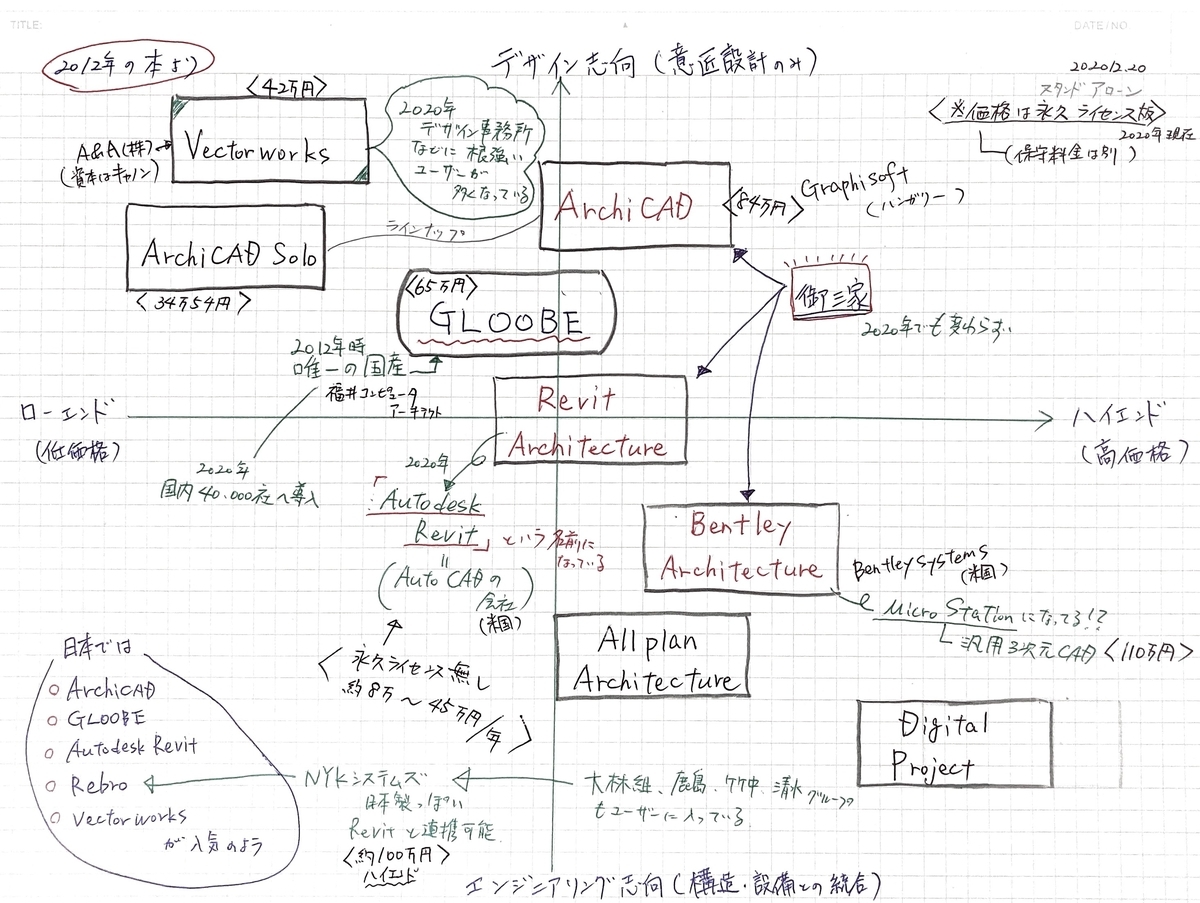 TITLE:
DATE/NO
2012年の本より
デザイン志向(意匠設計のみ)
2020.12.20
スタンドアローン
〈※価格は永久ライセンス版〉
2020年現在
(保守料金は別)
〈42万円〉
Vectorworks
A&A(株)
(資本はキャノン)
2020年
デザイン事務所
などに根強い
ユーザーが
多くなっている
ArchiCAD
〈84万円〉
Graphisoft
(ハンガリー)
ラインナップ
ArchiCAD Solo
〈34万54円〉
〈65万円〉
GLOOBE
御三家
2020年でも変わらず..
2012年時
唯一の国産
福井コンピュータ
アーキテクト
Revit
Architecture
ローエンド
(低価格)
ハイエンド
(高価格)
2020年
国内40.000社へ導入
2020年
「Autodesk
Revit」という名前に
なっている
=
(AutoCADの
会社)
(米国)
Bentley
Architecture
Bentley Systems
(米国)
Micro Stationになってる!?
汎用3次元CAD〈110万円〉
〈永久ライセンス無し
約8万~45万円/年〉
Allplan
Architecture
Digital
Project
日本では
○ ArchiCAD
○ GLOOBE
○ Autodesk Revit
○ Rebro
○ Vectorworks
が人気のよう
NYKシステムズ
日本製っぽい
Revitと連携可能
〈約100万円〉
ハイエンド
大林組、鹿島、竹中、清水グループ
もユーザーに入っている
エンジニアリング志向(構造・設備との統合)